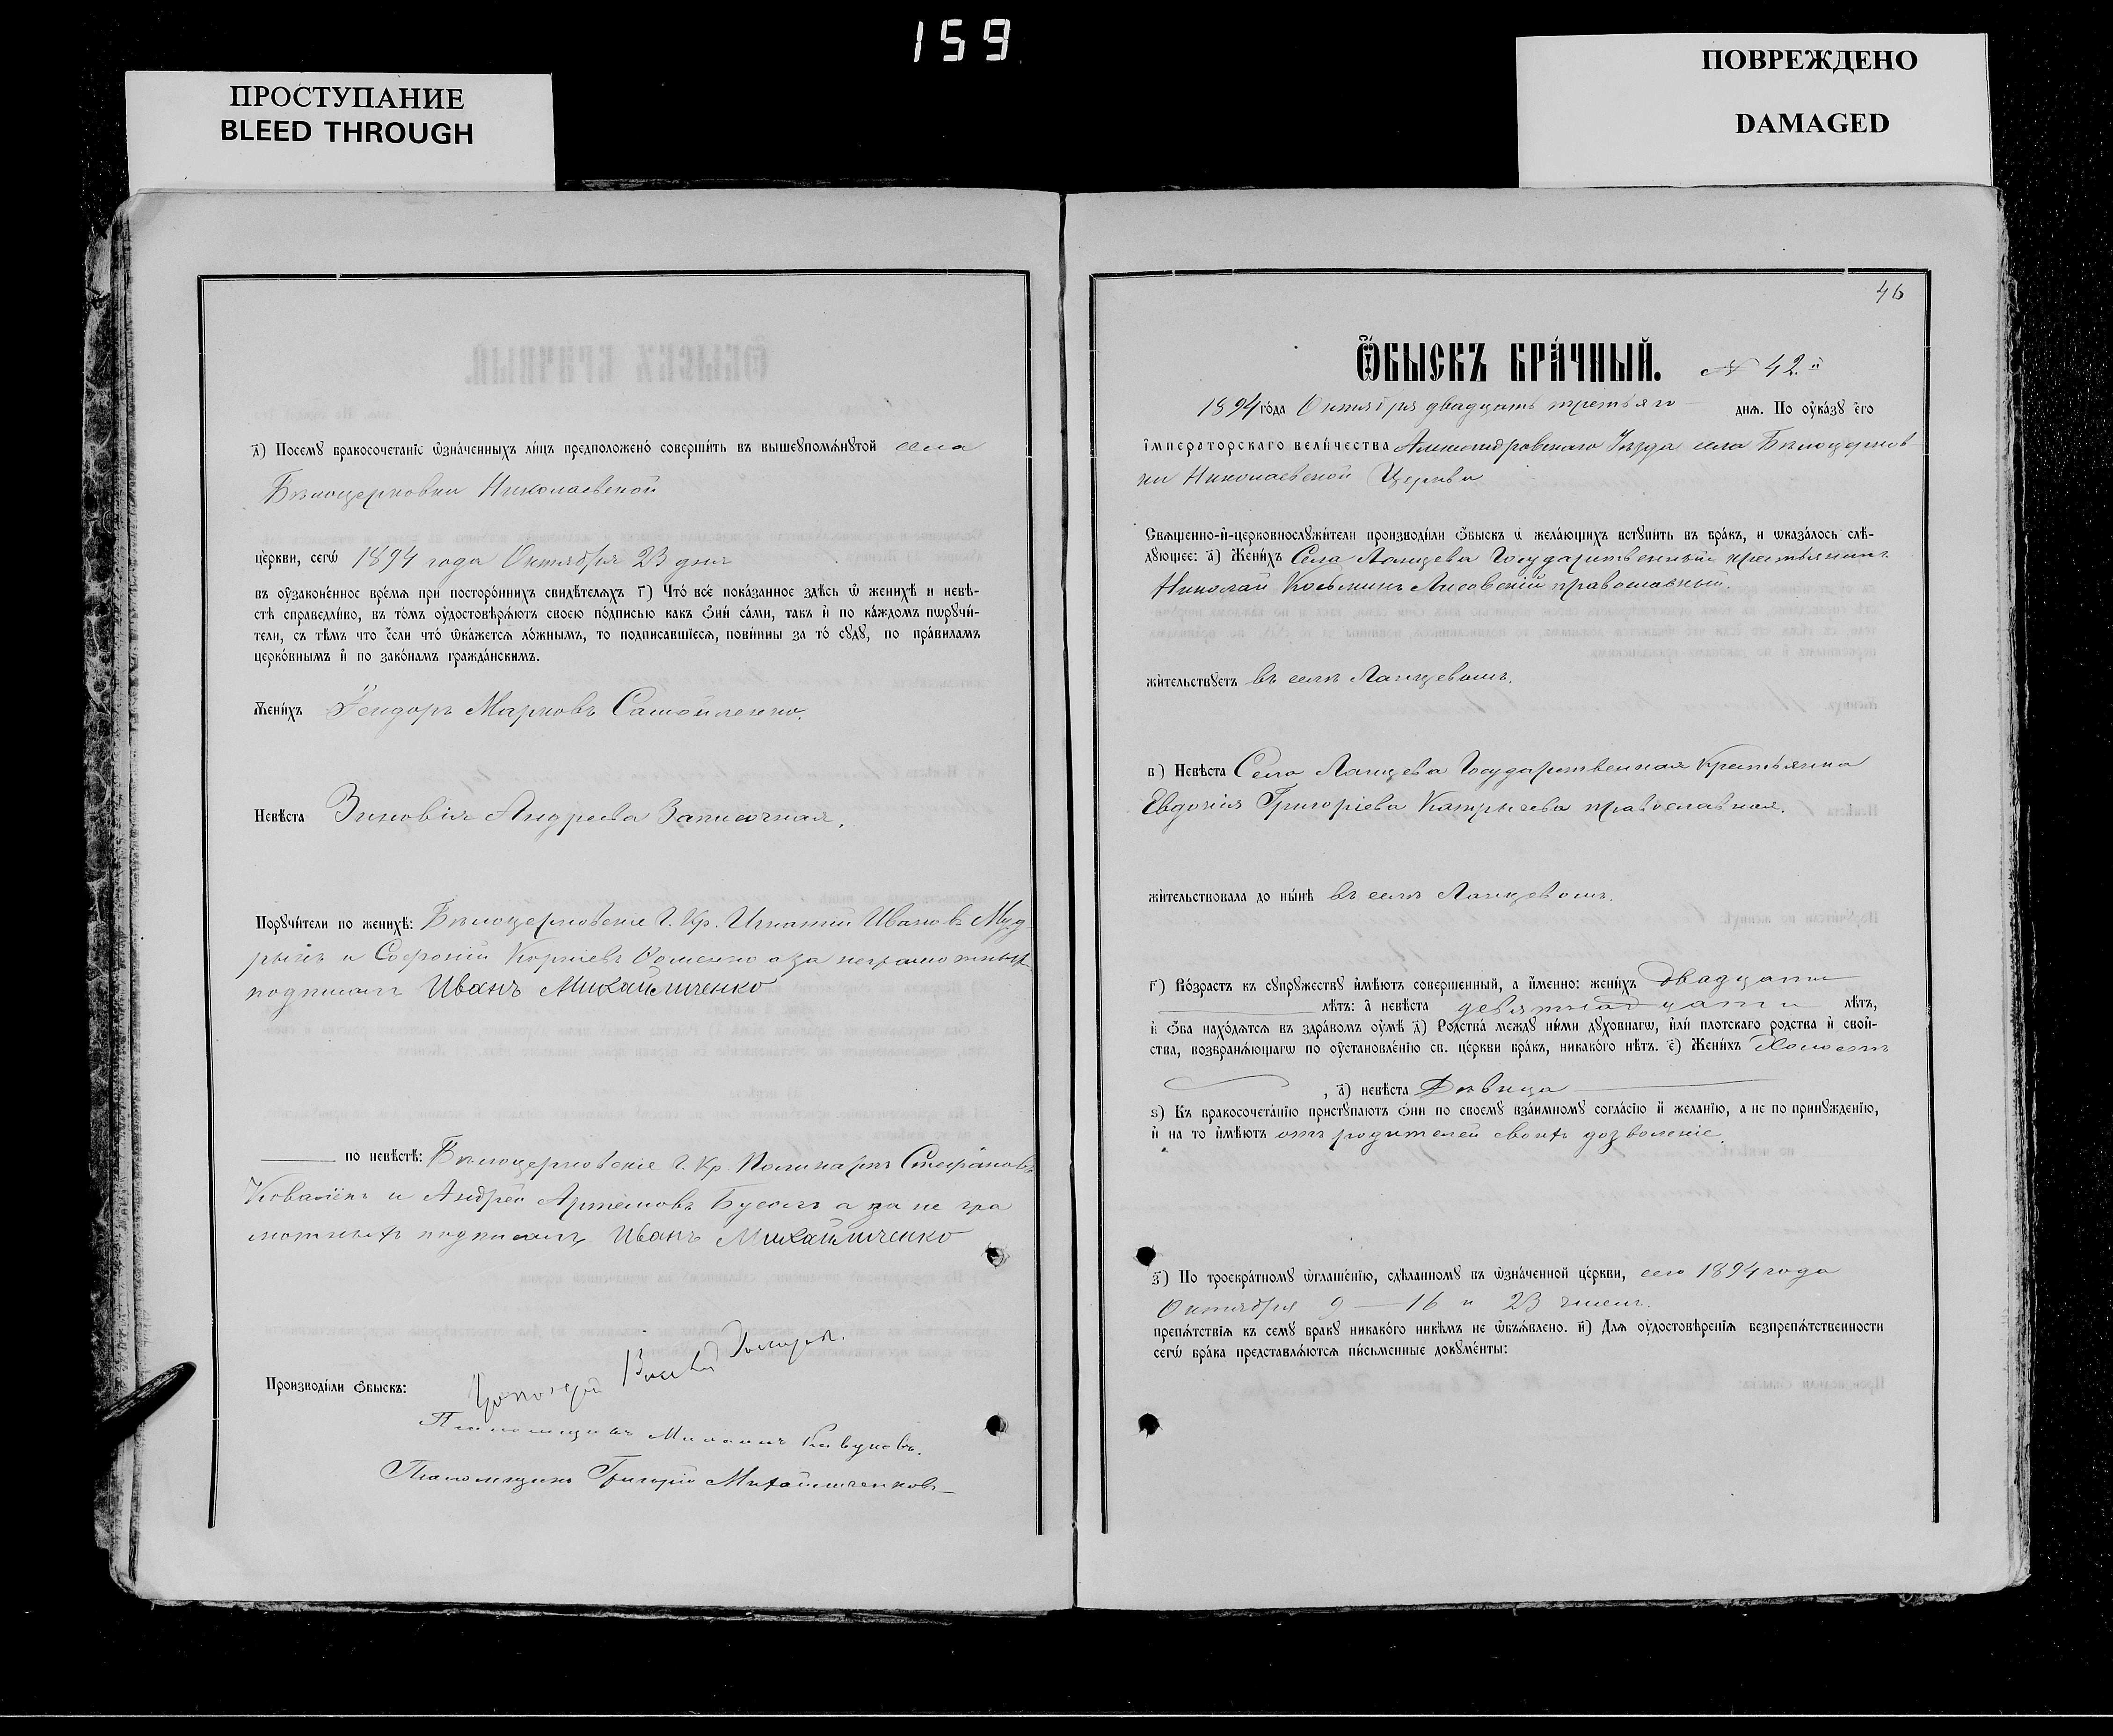 159
ПРОСТУПАНИЕ
BLEED THROUGH
ПОВРЕЖДЕНО
DAMAGED
д҃) Посемꙋ бракосочетаніе ѡзначенныхъ лицъ предположено совершить въ вышеꙋпомянꙋтой села
Бѣлоцерковки Николаевской
церкви, сегѡ 1894 года Октября 23 дня
въ оузаконенное время при постороннихъ свидѣтеляхъ г҃) Что все показанное здѣсь ѿ женихѣ и невѣ-
стѣ справедливо, въ томъ оудостовѣряютъ своею подписью какъ ѻни сами, такъ и по каждомъ порꙋчи-
тели, съ тѣмъ что если что ѿкажется ложнымъ, то подписавшіеся, повинны за то сꙋдꙋ, по правиламъ
церковнымъ и по законамъ гражданскимъ.
Женихъ Ѳеодоръ Марковъ Самойленко.
Невѣста Зиновія Андреева Записочная.
Порꙋчители по женихѣ: Бѣлоцерковскіе Г. Кр. Игнатій Ивановъ Муд-
рый и Софроній Корніевъ а за неграмотныхъ
подписалъ Иванъ Михайличенко
по невѣстѣ: Бѣлоцерковскіе Г. Кр. Поликарпъ Стефановъ
и Андрей Артемовъ а за не гра
мотныхъ подписалъ Иванъ Михайличенко
Производили ѻбыскъ:
Псаломщикъ
Псаломщикъ Григорій Михайличенковъ
46
Ѻбыскъ брачный. № 42.й
1894 года Октября двадцать третьяго дня. По оуказꙋ его
императорскаго величества Александровскаго Уѣзда села Бѣлоцерков
ки Николаевской Церкви
Священно-и-церковнослꙋжители производили ѻбыскъ ѡ желающихъ вступить въ бракъ, и ѡказалось слѣ-
дꙋющее: а҃) Женихъ Села Ланцева Государственный крестьянинъ
Николай Косьминъ Лисовскій православный.
жительствꙋетъ въ селѣ Ланцевомъ.
в҃) Невѣста Села Ланцева Государственная Крестьянка
Евдокія Григоріева православная.
жительствовала до нынѣ въ селѣ Ланцевомъ.
г҃) Возрастъ къ сꙋпрꙋжествꙋ имѣютъ совершенный, а именно: женихъ двадцати
лѣтъ: а невѣста девятнадцати лѣтъ,
и ѻба находятся въ здравомъ оумѣ д҃) Родства междꙋ ними дꙋховнагѡ, или плотскаго родства и свой-
ства, возбраняющагѡ по оустановленію св. церкви бракъ, никакого нѣтъ. е҃) Женихъ Холостъ
, а҃) невѣста Дѣвица
ѕ҃) Къ бракосочетанію пристꙋпаютъ ѻни по своемꙋ взаимномꙋ согласію и желанію, а не по принꙋжденію,
и на то имѣютъ отъ родителей своихъ дозволеніе.
з҃) По троекратномꙋ ѡглашенію, сдѣланномꙋ въ ѡзначенной церкви, сего 1894 года
Октября 9 — 16 и 23 чиселъ.
препятствія къ семꙋ бракꙋ никакого никѣмъ не ѡбъявлено. и҃) Для оудостовѣренія безпрепятственности
сегѡ брака представляются письменные докꙋменты: